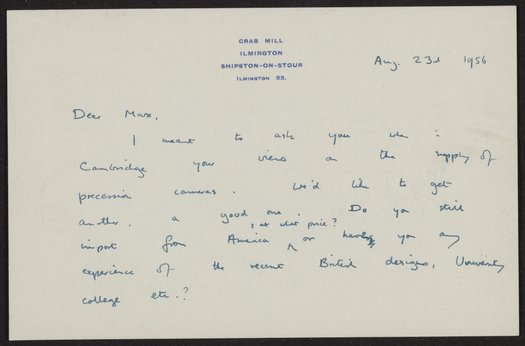 CRAB MILL
ILMINGTON
SHIPSTON-ON-STOUR
ILMINGTON 33.
Aug. 23rd 1956
Dear Max,
I meant to ask you when in
Cambridge your views on the supply of
precession cameras. We'd like to get
another, a good one. Do you still
; at what price?
import from America ^ or have you any
experience of the recent British designs, University
college etc.?